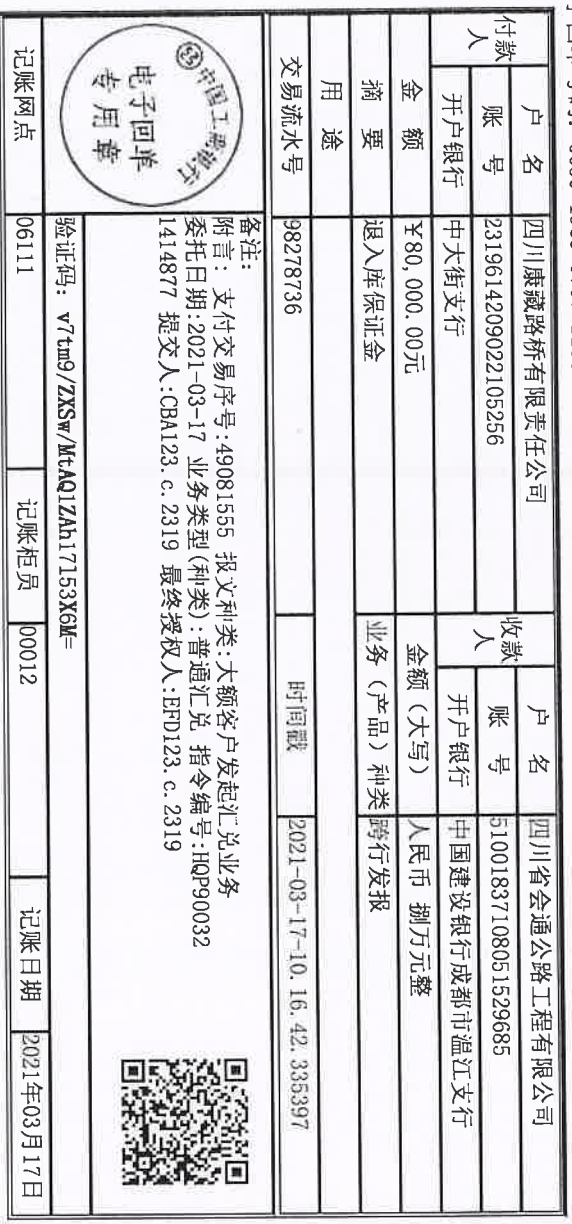 付款人
户 名
四川康藏路桥有限责任公司
账 号
2319614209022105256
开户银行
中大街支行
收款人
户 名
四川省会通公路工程有限公司
账 号
51001837108051529685
开户银行
中国建设银行成都市温江支行
金 额
¥80,000.00元
金额(大写)
人民币 捌万元整
摘 要
退入库保证金
业务(产品)种类
跨行发报
用 途
交易流水号
98278736
时间戳
2021-03-17-10.16.42.335397
中国工商银行
电子回单
专用章
备注:
附言: 支付交易序号:49081555 报文种类:大额客户发起汇兑业务
委托日期:2021-03-17 业务类型(种类):普通汇兑 指令编号:HQP90032
1414877 提交人:CBA123.c.2319 最终授权人:EFD123.c.2319
验证码: v7tm9/ZXSw/MtAQ1ZAh17153X6M=
记账网点
06111
记账柜员
00012
记账日期
2021年03月17日